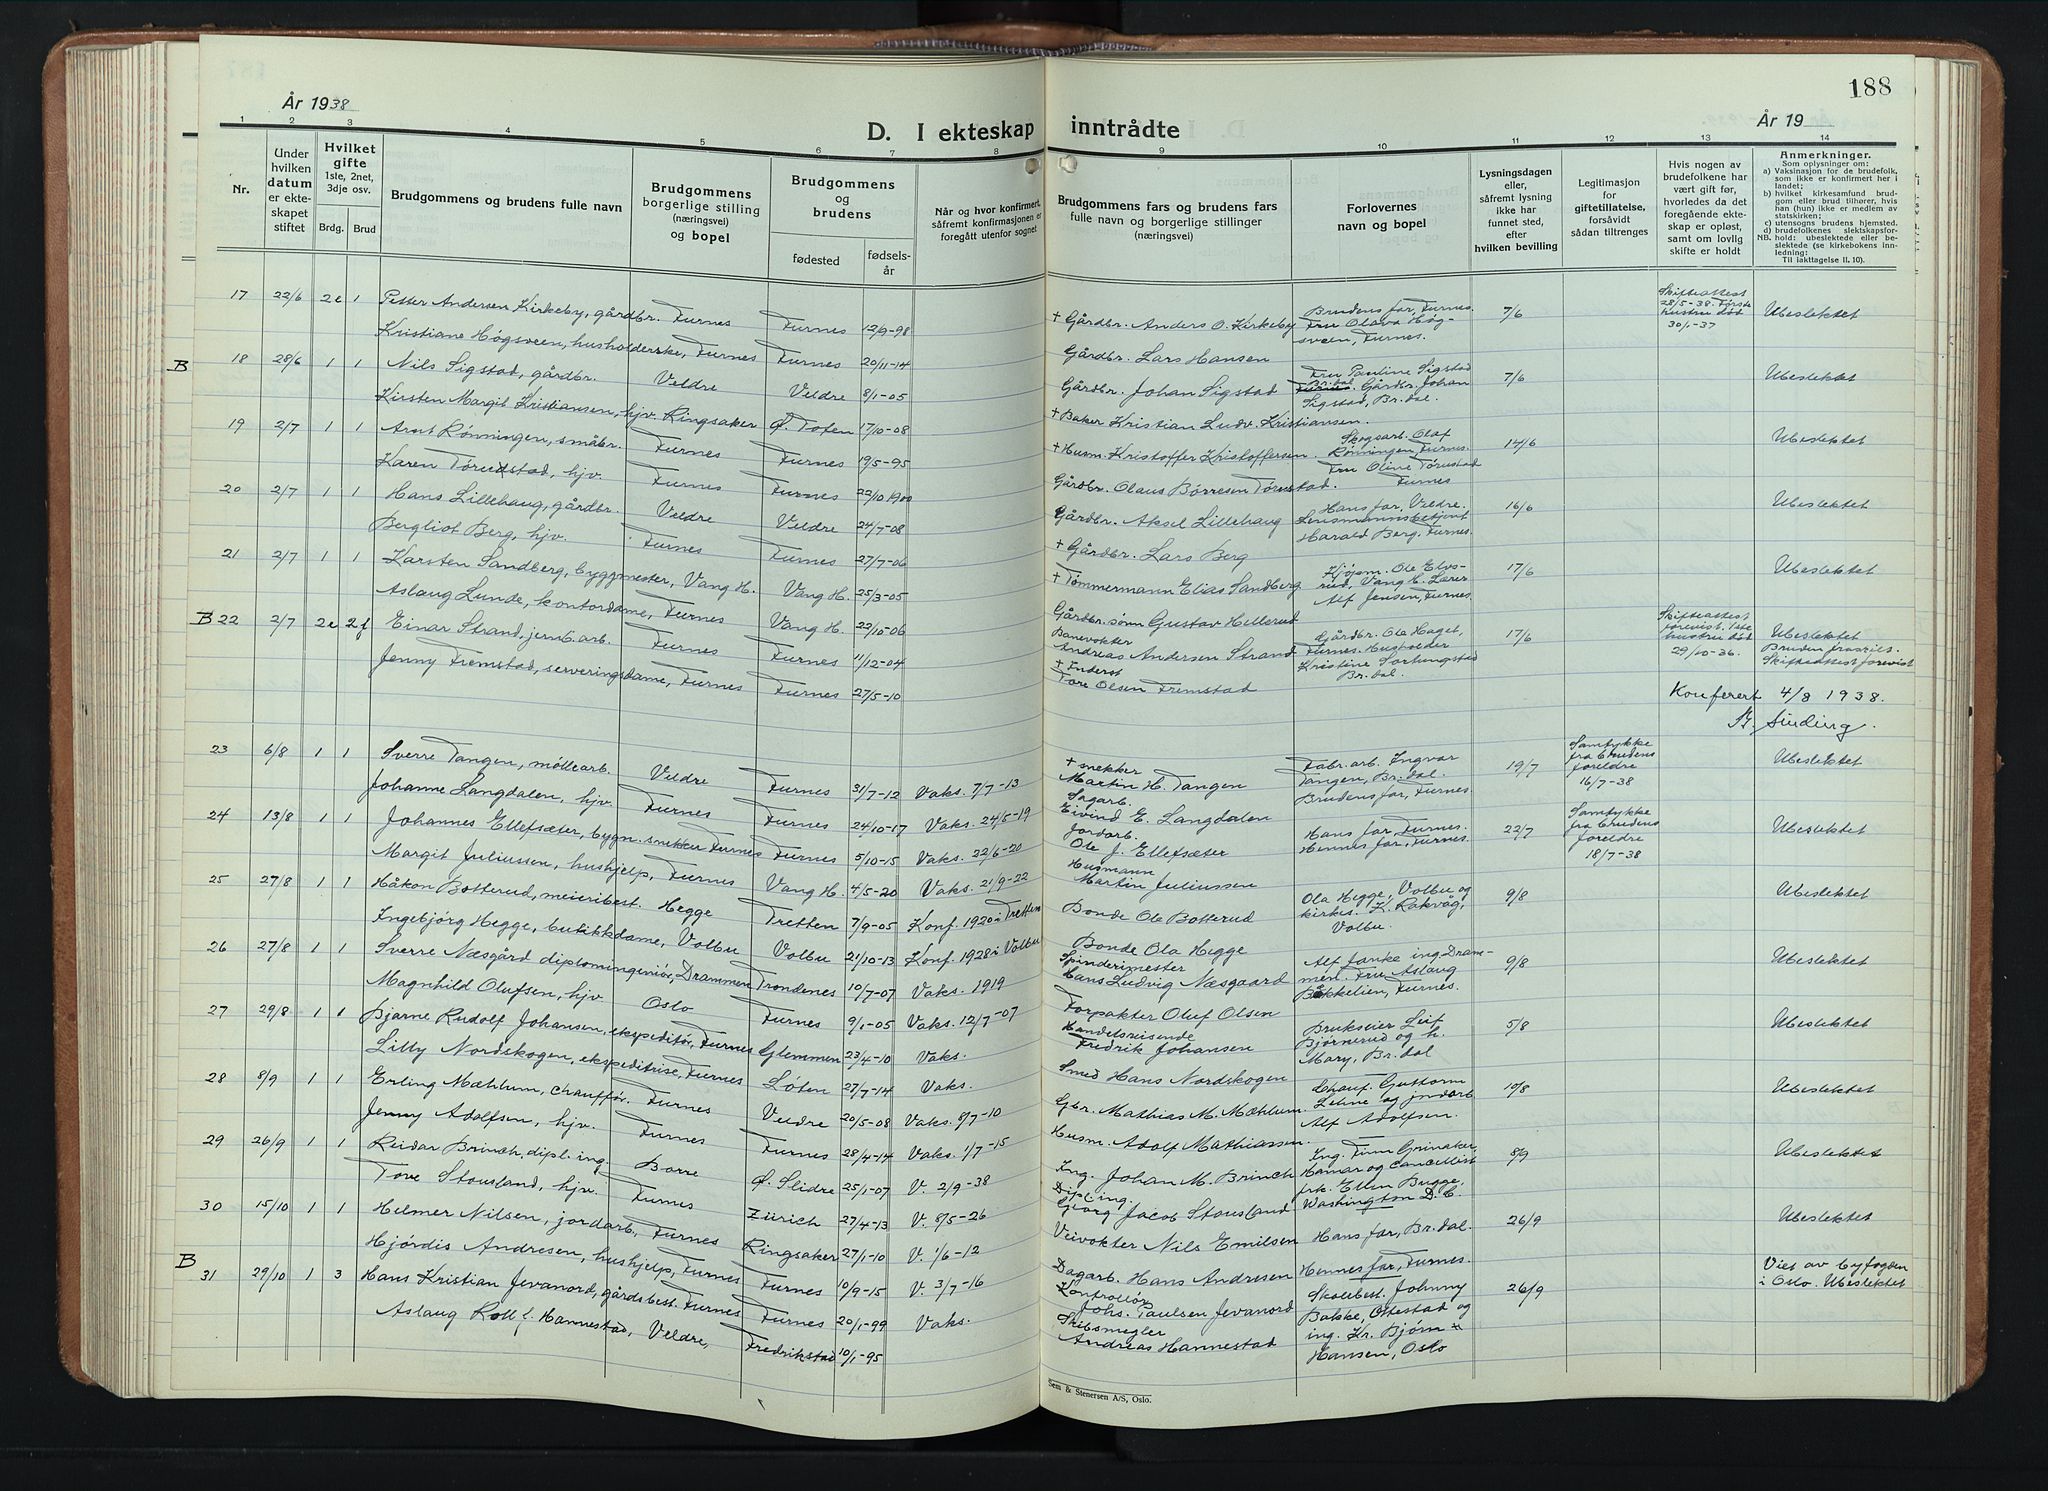 188
År 1938
D. I ekteskap inntrådte
År 19
1 2 3 4 5 6 7 8 9 10 11 12 13 14
Nr.
Under hvilken datum er ekteskapet stiftet
Hvilket gifte 1ste, 2net, 3dje osv.
Brdg. Brud
Brudgommens og brudens fulle navn
Brudgommens borgerlige stilling (næringsvei) og bopel
Brudgommens og brudens
fødested
fødselsår
Når og hvor konfirmert, såfremt konfirmasjonen er foregått utenfor sognet
Brudgommens fars og brudens fars fulle navn og borgerlige stillinger (næringsvei)
Forlovernes navn og bopel
Lysningsdagen eller, såfremt lysning ikke har funnet sted, efter hvilken bevilling
Legitimasjon for giftetillatelse, forsåvidt sådan tiltrenges
Hvis nogen av brudefolkene har vært gift før, hvorledes da det foregående ekteskap er opløst, samt om lovlig skifte er holdt
Anmerkninger.
Som oplysninger om:
a) Vaksinasjon for de brudefolk, som ikke er konfirmert her i landet;
b) hvilket kirkesamfund brudgom eller brud tilhører, hvis han (hun) ikke er medlem av statskirken;
c) utensogns brudens hjemsted.
d) brudefolkenes slektskapsforhold: ubeslektede eller beslektede (se kirkebokens innledning:
NB. Til iakttagelse II. 10).
17 22/6 2e 1 Petter Andersen Kirkeby, gårdbr. Furnes Furnes 12/9-98 + Gårdbr. Anders O. Kirkeby Brudens far, Furnes. Fru Olava Høgsveen, Furnes. 7/6 Skifteattest 28/5-38. Første hustru død 30/1-37 Ubeslektet
Kristiane Høgsveen, husholderske, Furnes Furnes 20/11-14 Gårdbr. Lars Hansen
B 18 28/6 1 1 Nils Sigstad, gårdbr. Veldre Veldre 8/1-05 Gårdbr. Johan Sigstad Fru Pauline Sigstad Br.dal. Gårdbr. Johan Sigstad, Br.dal. 7/6 Ubeslektet
Kirsten Margit Kristiansen, hjv. Ringsaker Ø. Toten 17/10-08 + Baker Kristian Ludv. Kristiansen.
19 2/7 1 1 Arnt Rønningen, småbr. Furnes Furnes 19/5-95 + Husm. Kristoffer Kristoffersen. Skogsarb. Olaf Rønningen, Furnes. Fru Oline Tørudstad Furnes 14/6 Ubeslektet
Karen Tørudstad, hjv. Furnes Furnes 22/10 1900 Gårdbr. Olaus Børresen Tørudstad.
20 2/7 1 1 Hans Lillehaug, gårdbr. Veldre Veldre 24/7-08 Gårdbr. Aksel Lillehaug Hans far, Veldre. Lensmannsbetjent Harald Berg, Furnes. 16/6 Ubeslektet
Bergliot Berg, hjv. Furnes Furnes 27/7-06 + Gårdbr. Lars Berg
21 2/7 1 1 Karsten Sandberg, byggmester, Vang H. Vang H. 25/3-05 + Tømmermann Elias Sandberg Kjøpm. Ole Elvsrud, Vang H. Lærer Alf Jensen, Furnes. 17/6 Ubeslektet
Aslaug Lunde, kontordame, Furnes Vang H. 22/10-06 Gårdbr.sønn Gustav Hellerud
B 22 2/7 2e 2f Einar Strand, jernb.arb. Furnes Furnes 11/12-04 Banevokter Andreas Andersen Strand Gårdbr. Ole Haget, Furnes. Husholder Kristine Sortungstad Br.dal. 17/6 Skifteattest forevist. 1ste hustru død 29/10-36. Ubeslektet Bruden fraskilt. Skifteattest forevist
Jenny Fremstad, serveringsdame, Furnes Furnes 27/5-10 + Inderst Tore Olsen Fremstad
Konferert 4/8 1938.
Sinding.
23 6/8 1 1 Sverre Tangen, møllearb. Veldre Furnes 31/7-12 Vaks. 7/7-13 + snekker Martin H. Tangen Fabr.arb. Ingvar Tangen, Br.dal. Brudens far, Furnes. 19/7 Samtykke fra brudens foreldre 16/7-38 Ubeslektet
Johanne Langdalen, hjv. Furnes Furnes 24/10-17 Vaks. 24/5-19 Sagarb. Eivind E. Langdalen
24 13/8 1 1 Johannes Ellefsæter, bygn.snekker Furnes Furnes 5/10-15 Vaks. 22/6-20 Jordarb. Ole J. Ellefsæter Hans far, Furnes. Hennes far, Furnes. 22/7 Samtykke fra brudens foreldre 18/7-38 Ubeslektet
Margit Juliussen, hushjelp, Furnes Vang H. 4/5-20 Vaks. 21/9-22 Husmann Martin Juliussen
25 27/8 1 1 Håkon Botterud, meieribest. Hegge Tretten 7/9-05 Konf. 1920 i Tretten Bonde Ole Botterud Ola Hegge, Volbu og kirkes. K. Rakvåg, Volbu. 9/8 Ubeslektet
Ingebjørg Hegge, butikkdame, Volbu Volbu 21/10-13 Konf. 1928 i Volbu Bonde Ola Hegge
26 27/8 1 1 Sverre Næsgård diplomingeniør, Drammen Trondenes 10/7-07 Vaks. 1919 Spinderimester Hans Ludvig Næsgaard Alf Janke ing. Drammen. Fru Aslaug Bækkelien, Furnes. 9/8 Ubeslektet
Magnhild Olufsen, hjv Oslo Furnes 9/1-05 Vaks. 12/7-07 Forpakter Oluf Olsen
27 29/8 1 1 Bjarne Rudolf Johansen, ekspeditør, Furnes Glemmen 23/4-10 Vaks. Handelsreisende Fredrik Johansen Brukseier Leif Bjørnerud og h. Mary, Br.dal 5/8 Ubeslektet
Lilly Nordskogen, ekspeditrise, Furnes Løten 27/7-14 Vaks. Smed Hans Nordskogen
28 8/9 1 1 Erling Mæhlum, chauffør. Furnes Veldre 20/5-08 Vaks. 8/7-10 Gbr. Mathias M. Mæhlum. Chauf. Guttorm Lehne og jordarb Alf Adolfsen. 10/8 Ubeslektet
Jenny Adolfsen, hjv. Furnes Furnes 28/4-14 Vaks. 1/7-15 Husm. Adolf Mathiassen.
29 26/9 1 1 Reidar Brinch, dipl.ing. Borre Ø. Slidre 25/1-07 V. 2/9-38 Ing. Johan M. Brinch Ing. Finn Grinaker, Hamar og Cancellist frk. Ellen Bugge, Washington D.C. 8/9 Ubeslektet
Tove Stousland, hjv. Furnes Zürich 27/4-13 V. 8/5-26 Dipl.ing. Georg Jacob Stousland
30 15/10 1 1 Helmer Nilsen, jordarb., Furnes Ringsaker 27/1-10 V. 1/6-12 Veivokter Nils Emilsen Hans far, Br.dal. 26/9 Ubeslektet
Hjørdis Andresen, hushjelp, Furnes Furnes 10/9-15 V. 3/7-16 Dagarb. Hans Andresen Hennes far, Furnes.
B 31 29/10 1 3 Hans Kristian Jevanord, gårdsbest. Furnes Furnes 20/1-99 Vaks. Kontrollør Johs. Paulsen Jevanord Skolebest. Johnny Bakke, Ottestad og ing. Kr. Bjørn-Hansen, Oslo 26/9 Viet av byfogden i Oslo. Ubeslektet
Aslaug Roll f. Hannestad, Veldre, Fredrikstad 10/1-95 Skibsmegler Andreas Hannestad
Sem & Stenersen A/S, Oslo.